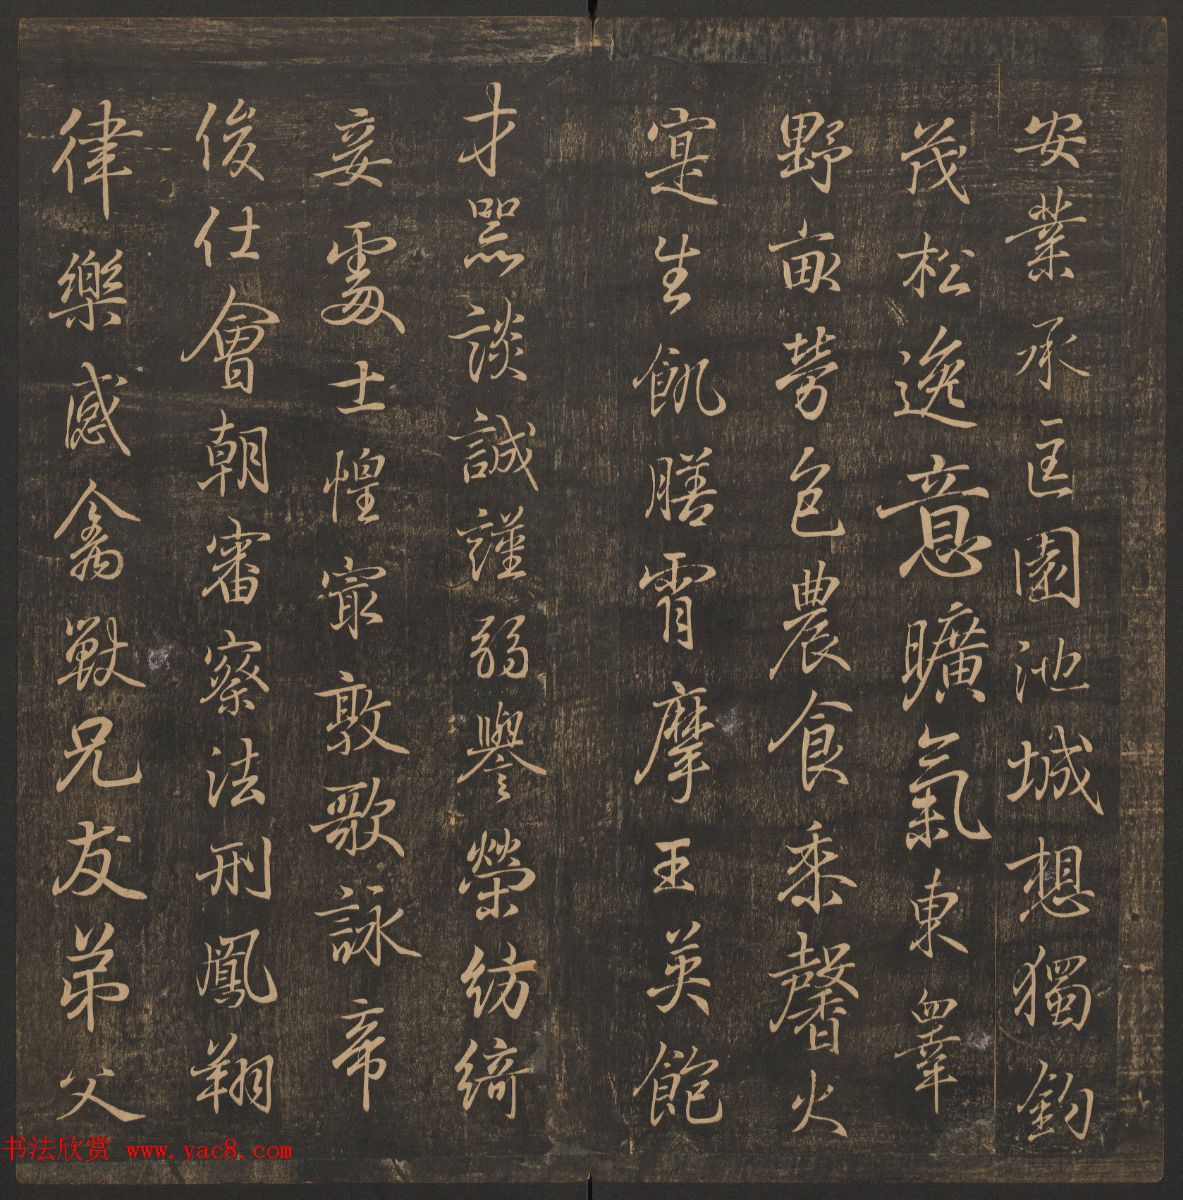 安業承匡園池城想獨鈞
茂松逸意曠氣東睾
野畝勞色農食黍馨火
寔生飢膳霄摩王英飽
才器談誠謹弱譽榮紡綺
妾處士惶冣敦歌詠帝
俊仕會朝審察法刑鳳翔
律樂感禽獸兄友弟父
书法欣赏 www.yac8.com